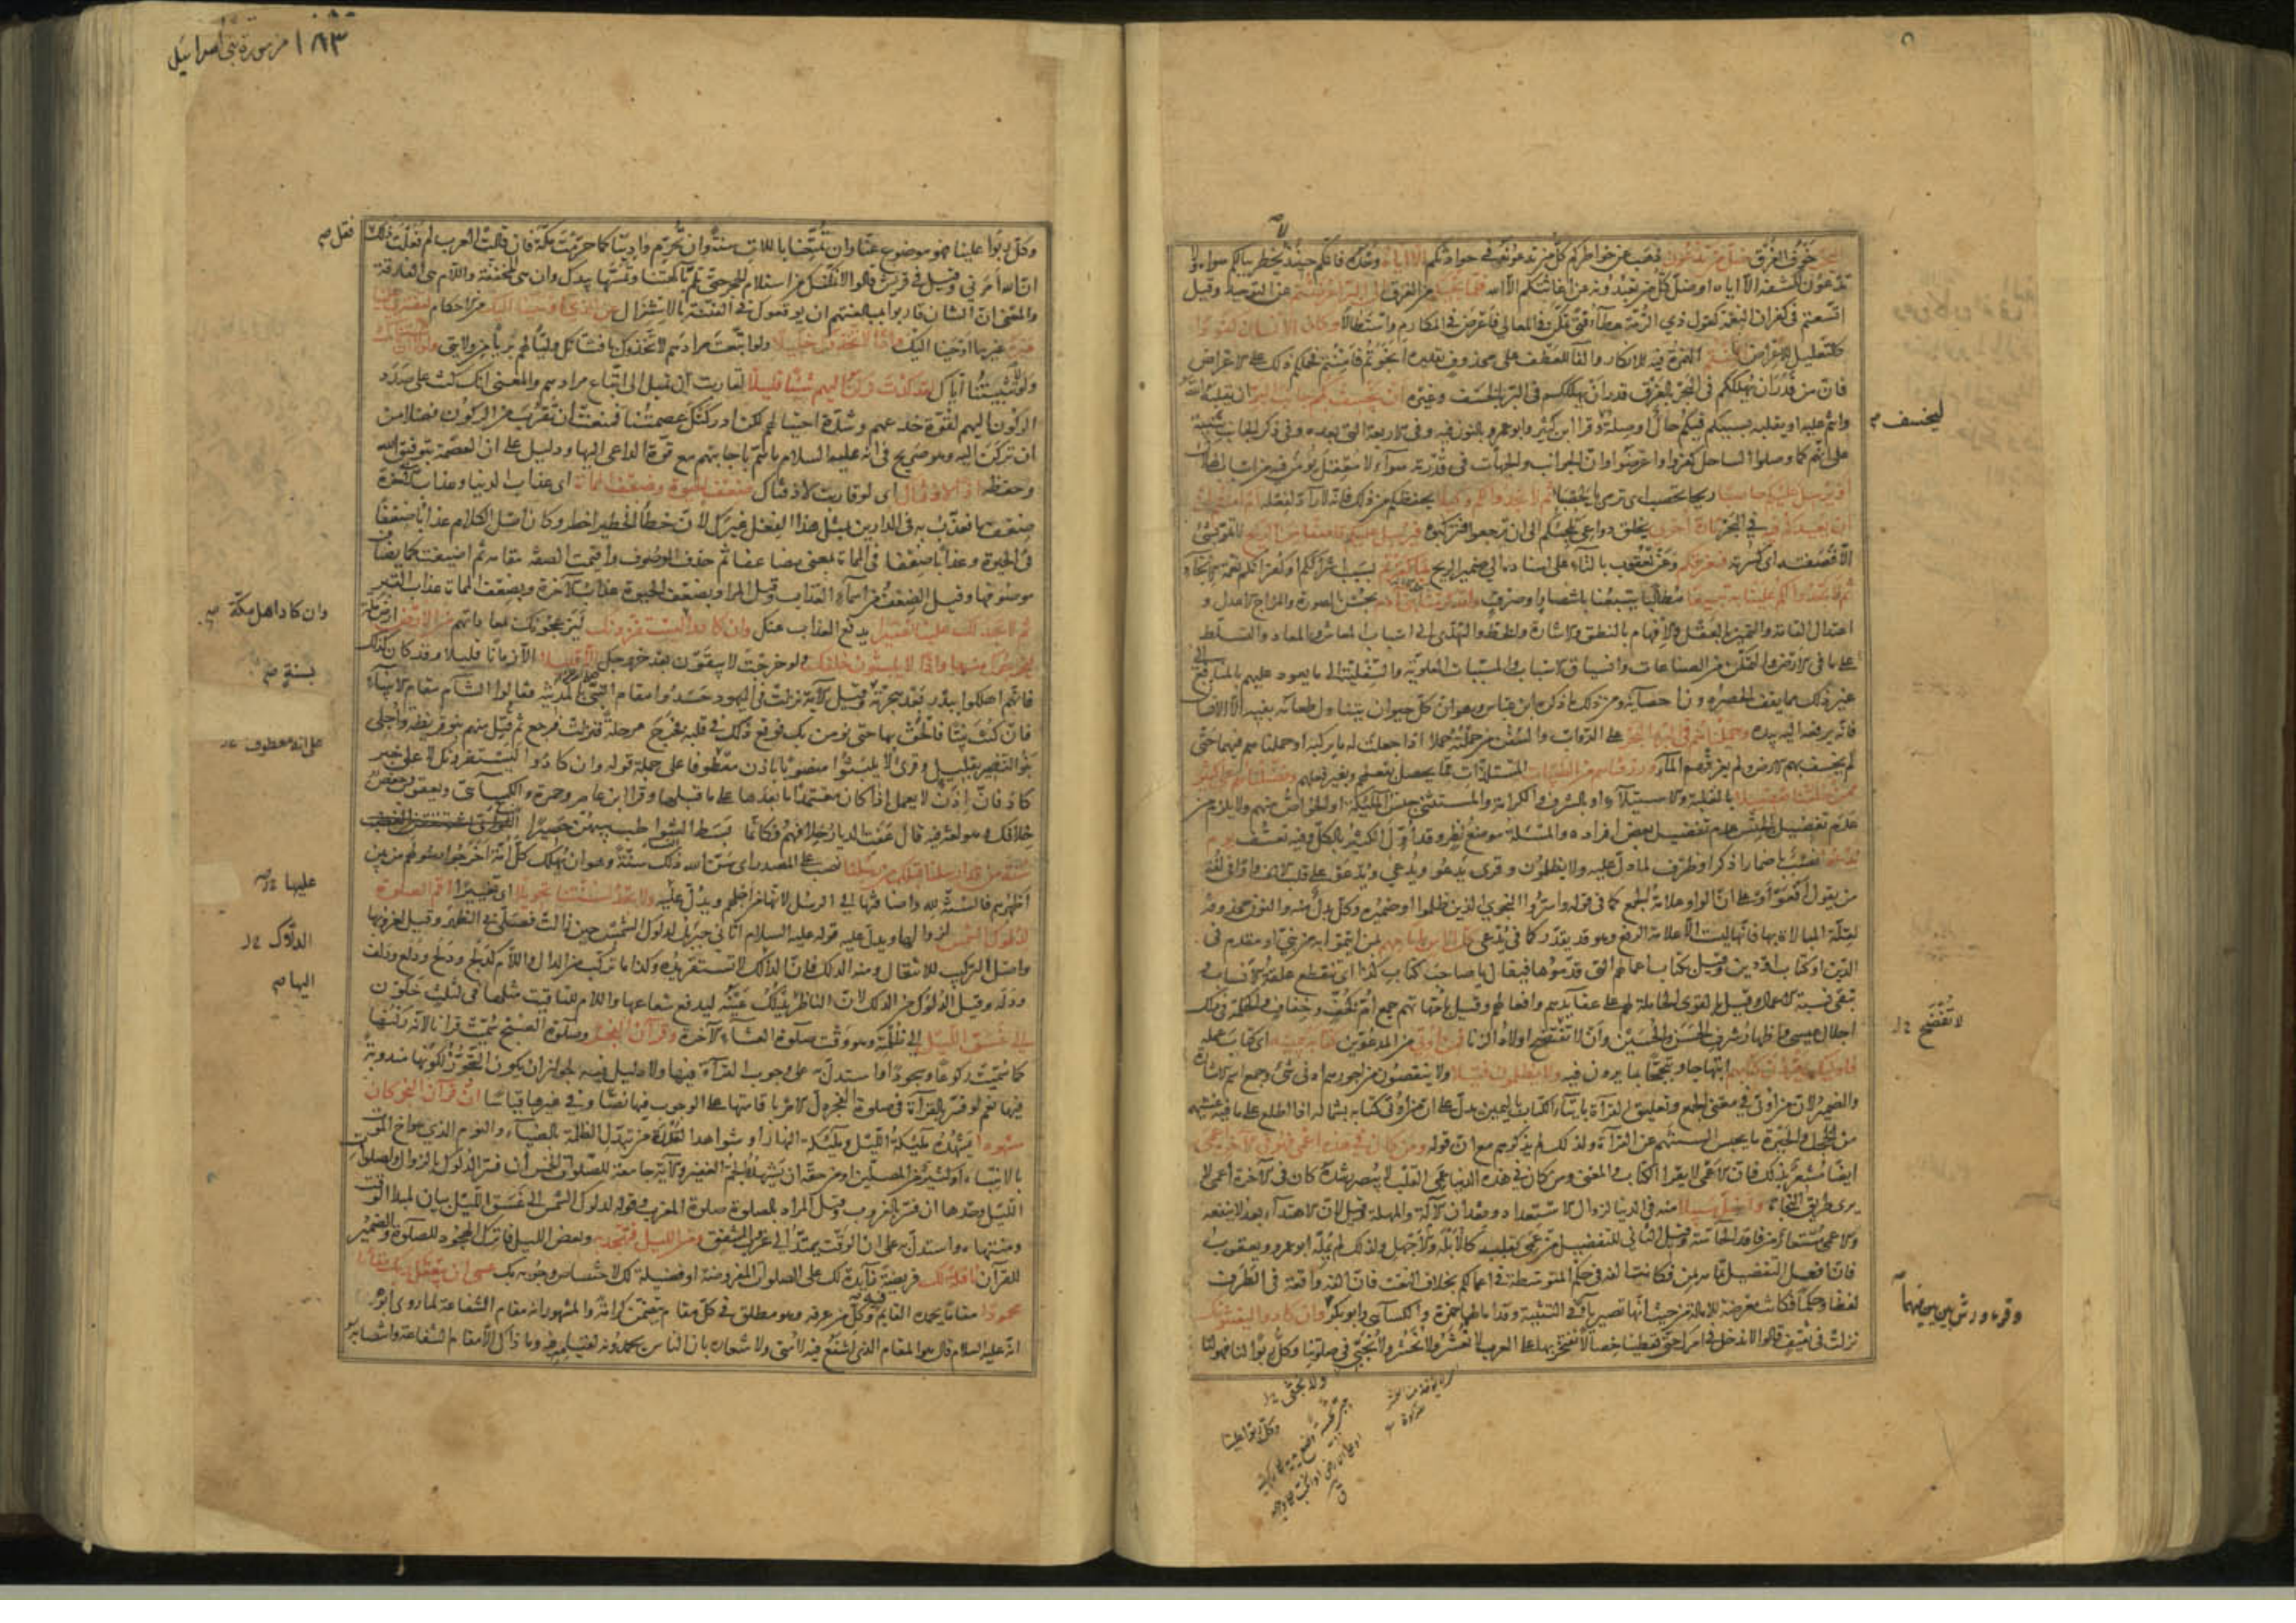 خوف الغرق ضل من تدعون ذهب عن خواطركم كل من تدعونه في حوادثكم الا اياه وحده فانكم حينئذ لا يخطر ببالكم سواه ولا
تدعون لكشفه الا اياه او ضل كل من تعبدونه عن اغاثتكم الا الله فلما نجيكم من الغرق الى البر اعرضتم عن التوحيد وقيل
اتسعتم في كفران النعمة كقول ذي الرمة عطاء فتى تمكن في المعالي فاعرض في المكارم واستطالا وكان الانسان كفورا
كالتعليل للاعراض افأمنتم الهمزة فيه للانكار والفاء للعطف على محذوف تقديره انجوتم فامنتم فحملكم ذلك على الاعراض
فان من قدر ان يهلككم في البحر بالغرق قدر ان يهلككم في البر بالخسف وغيره ان يخسف بكم جانب البر ان يقلبه الله
وانتم عليه او يقلبه بسببكم فبكم حال او صلة وقرا ابن كثير وابو عمرو بالنون فيه وفي الاربعة التي بعده وفي ذكر الجانب تنبيه
على انهم كما وصلوا الساحل كفروا واعرضوا وان الجوانب والجهات في قدرته سواء لا معقل يؤمن فيه من اسباب الهلاك
او يرسل عليكم حاصبا ريحا تحصب اى ترمي بالحصبا ثم لا تجدوا لكم وكيلا يحفظكم من ذلك فانه لا راد لفعله ام امنتم
ان يعيدكم فيه في البحر تارة اخرى بخلق دواعي تلجئكم الى ان ترجعوا فتركبوه فيرسل عليكم قاصفا من الريح لا تمر بشئ
الا قصفته اى كسرته فيغرقكم وعن يعقوب بالتاء على اسناده الى ضمير الريح بما كفرتم بسبب اشراككم او كفرانكم نعمة الانجاء
ثم لا تجدوا لكم علينا به تبيعا مطالبا يتبعنا بانتصار او صرف ولقد كرمنا بني ادم بحسن الصورة والمزاج الاعدل و
اعتدال القامة والتمييز بالعقل والافهام بالنطق والاشارة والخط والتهدي الى اسباب المعاش والمعاد والتسلط
على ما في الارض والتمكن من الصناعات وانسياق الاسباب والمسببات العلوية والسفلية الى ما يعود عليهم بالمنافع الى
غير ذلك مما يقف الحصر دون احصائه ومن ذلك ما ذكره ابن عباس وهو ان كل حيوان يتناول طعامه بفيه الا الانسان
فانه يرفعه اليه بيده وحملناهم في البر والبحر على الدواب والسفن من حملته حملا اذا جعلت له ما يركبه او حملناهم فيهما حتى
لم يخسف بهم الارض ولم يغرقهم الماء ورزقناهم من الطيبات المستلذات مما يحصل بفعلهم وبغير فعلهم وفضلناهم على كثير
ممن خلقنا تفضيلا بالغلبة والاستيلاء او بالشرف والكرامة والمستثنى جنس الملئكة او الخواص منهم ولا يلزم من
عدم تفضيل الجنس عدم تفضيل بعض افراده والمسئلة موضع نظر وقد اول الكثير بالكل وفيه تعسف يوم
ندعوا نصب باضمار اذكر او ظرف لما دل عليه ولا يظلمون وقرى يدعو ويدعي ويدعو على قلب الالف واوا في لغة
من يقول افعو او على ان الواو علامة الجمع كما في قوله واسروا النجوى الذين ظلموا او ضميره وكل بدل منه والنون محذوفة
لقلة المبالاة بها فانها ليست الا علامة الرفع وهو قد يقدر كما في يدعي كل اناس بامامهم بمن ائتموا به من نبي او مقدم في
الدين او كتاب او دين وقيل بكتاب اعمالهم التي قدموها فيقال يا صاحب كتاب كذا اى تنقطع علقة الانساب و
تبقى نسبة الاعمال وقيل بالقوى الحاملة لهم على عقايدهم وافعالهم وقيل بامهاتهم جمع ام كخف وخفاف والحكمة في ذلك
اجلال عيسى واظهار شرف الحسن والحسين وان لا تفتضح اولاد الزنا فمن اوتي من المدعوين كتابه بيمينه اى كتاب عمله
فاولئك يقرؤن كتابهم ابتهاجا وتبجحا بما يرون فيه ولا يظلمون فتيلا ولا ينقصون من اجورهم ادنى شئ وجمع اسم الاشارة
والضمير لان من اوتي في معنى الجمع وتعليق القراءة بايتاء الكتاب باليمين يدل على ان من اوتي كتابه بشماله اذا اطلع على ما فيه غشيهم
من الخجل والحيرة ما يحبس السنتهم عن القراءة ولذلك لم يذكرهم مع ان قوله ومن كان في هذه اعمى فهو في الآخرة اعمى
ايضا مشعر بذلك فان الاعمى لا يقرا الكتاب والمعنى ومن كان في هذه الدنيا اعمى القلب لا يبصر رشده كان في الآخرة اعمى لا
يرى طريق النجاة واضل سبيلا منه في الدنيا لزوال الاستعداد وفقدان الآلة والمهلة وقيل لان الاهتداء بعد لا ينفعه
والاعمى مستعار من فاقد الحاسة وقيل الثاني للتفضيل من عمى بقلبه كالابله والاجهل ولذلك لم يمله ابو عمرو ويعقوب
فان افعل التفضيل تمامه بمن فكانت الفه في حكم المتوسطة في اعمالكم بخلاف النعت فان الفه واقعة في الطرف
لفظا وحكما فكانت معرضة للامالة من حيث انها تصير ياء في التثنية وقد امالهما حمزة والكسائى وابو بكر وان كادوا ليفتنونك
نزلت في ثقيف قالوا لا ندخل في امرك حتى تعطينا خصالا نفتخر بها على العرب لا نعشر ولا نحشر ولا نجبي في صلوتنا وكل ربوا لنا فهو لنا
ليخسف
لا تفتضح
وقرء ورش بين بين فيهما
ولا نجثى
وكل ربوا علينا
١٨٣ من سورة بني اسرائيل
وكل ربوا علينا فهو موضوع عنا وان تمتعنا باللات سنة وان تحرم وادينا كما حرمت مكة فان قالت العرب لم فعلت ذلك
ان الله امرني وقيل في قريش قالوا لا نمكنك من استلام الحجر حتى تلم بآلهتنا وتمسها بيدك وان هي المخففة واللام هي الفارقة
والمعنى ان الشان قاربوا بمبالغتهم ان يوقعوك في الفتنة بالاستنزال عن الذي اوحينا اليك من الاحكام لتفتري علينا
غيره غير ما اوحينا اليك واذا لاتخذوك خليلا ولو اتبعت مرادهم لاتخذوك بافتتانك وليا لهم بريا من ولايتي ولولا ان ثبتناك
ولولا تثبيتنا اياك لقد كدت تركن اليهم شيئا قليلا لقاربت ان تميل الى اتباع مرادهم والمعنى انك كنت على صدد
الركون اليهم لقوة خدعهم وشدة احتيالهم لكن ادركتك عصمتنا فمنعت ان تقرب من الركون فضلا من
ان تركن اليه وهو صريح في انه عليه السلام ما هم باجابتهم مع قوة الداعي اليها ودليل على ان العصمة بتوفيق الله
وحفظه اذا لاذقناك اى لو قاربت لاذقناك ضعف الحيوة وضعف الممات اى عذاب الدنيا وعذاب الآخرة
ضعف ما نعذب به في الدارين بمثل هذا الفعل غيرك لان خطا الخطير اخطر وكان اصل الكلام عذابا ضعفا
في الحيوة وعذابا ضعفا في الممات بمعنى مضاعفا ثم حذف الموصوف واقيمت الصفة مقامه ثم اضيفت كما يضاف
موصوفها وقيل الضعف من اسماء العذاب وقيل المراد بضعف الحيوة عذاب الآخرة وبضعف الممات عذاب القبر
ثم لا تجد لك علينا نصيرا يدفع العذاب عنك وان كادوا ليستفزونك ليزعجونك بمعاداتهم من الارض ارض مكة
ليخرجوك منها واذا لا يلبثون خلفك ولو خرجت لا يبقون بعد خروجك الا قليلا الا زمانا قليلا وقد كان كذلك
فانهم اهلكوا ببدر بعد هجرته وقيل الآية نزلت في اليهود حسدوا مقام النبي بالمدينة فقالوا الشام مقام الانبياء
فان كنت نبيا فالحق بها حتى نؤمن بك فوقع ذلك في قلبه فخرج مرحلة فنزلت فرجع ثم قتل منهم بنو قريظة واجلى
بنو النضير بقليل وقرئ لا يلبثوا منصوبا باذن معطوفا على جملة قوله وان كادوا ليستفزونك لا على خبر
كاد فان اذن لا يعمل اذا كان معتمدا ما بعدها على ما قبلها وقرا ابن عامر وحمزة والكسائى ويعقوب وحفص
خلافك وهو لغة فيه قال عفت الديار خلافهم فكانما بسط الشواطب بينهن حصيرا
سنة من قد ارسلنا قبلك من رسلنا نصب على المصدر اى سن الله ذلك سنة وهو ان يهلك كل امة اخرجوا رسولهم من بين
اظهرهم فالسنة لله واضافتها الى الرسل لانها من اجلهم ويدل عليه ولا تجد لسنتنا تحويلا اى تغييرا اقم الصلوة
لدلوك الشمس لزوالها ويدل عليه قوله عليه السلام اتاني جبريل لدلوك الشمس حين زالت فصلى بي الظهر وقيل لغروبها
واصل التركيب للانتقال ومنه الدلك فان الدلك لا تستقر يده وكذا ما تركب من الدال واللام كدلج ودلح ودلع ودلف
ودله وقيل الدلوك من الدلك لان الناظر يدلك عينيه ليدفع شعاعها واللام للتاقيت مثلها في لثلث خلون
الى غسق الليل الى ظلمته وهو وقت صلوة العشاء الآخرة وقرآن الفجر وصلوة الصبح سميت قرانا لانه ركنها
كما سميت ركوعا وسجودا واستدل به على وجوب القراءة فيها ولا دليل فيه لجواز ان يكون التجوز لكونها مندوبة
فيها نعم لو فسر بالقراءة في صلوة الفجر دل الامر باقامتها على الوجوب فيها نصا وفي غيرها قياسا ان قرآن الفجر كان
مشهودا يشهده ملئكة الليل وملئكة النهار او شواهد القدرة من تبدل الظلمة بالضياء والنوم الذي هو اخ الموت
بالانتباه او كثير من المصلين او من حقه ان يشهده الجم الغفير والآية جامعة للصلوات الخمس ان فسر الدلوك بالزوال ولصلوات
الليل وحدها ان فسر بالغروب وقيل المراد بالصلوة صلوة المغرب وقوله لدلوك الشمس الى غسق الليل بيان لمبدا الوقت
ومنتهاه واستدل به على ان الوقت يمتد الى غروب الشفق ومن الليل فتهجد به وبعض الليل فاترك الهجود للصلوة والضمير
للقرآن نافلة لك فريضة زايدة لك على الصلوات المفروضة او فضيلة لك لاختصاص وجوبه بك عسى ان يبعثك ربك مقاما
محمودا مقاما يحمده القايم فيه وكل من عرفه وهو مطلق في كل مقام يتضمن كرامة والمشهور انه مقام الشفاعة لما روى ابو هريرة
انه عليه السلام قال هو المقام الذي اشفع فيه لامتي ولاشعاره بان الناس يحمدونه لقيامه فيه وما ذاك الا مقام الشفاعة وانتصابه
فقل
وان كاد اهل مكة
بسنة
على انه معطوف
عليها
الدلاك
اليها